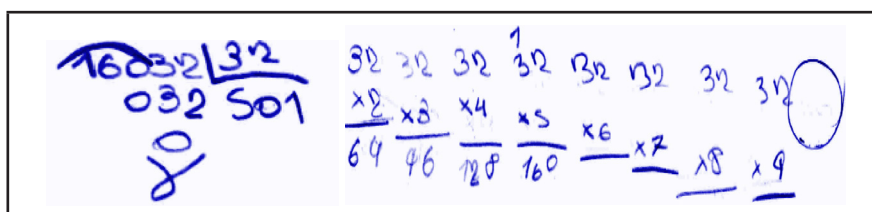 16032 32
032 501
0
32 32 32 1 32 32 32 32 32
x2 x3 x4 x5 x6 x7 x8 x9
64 96 128 160